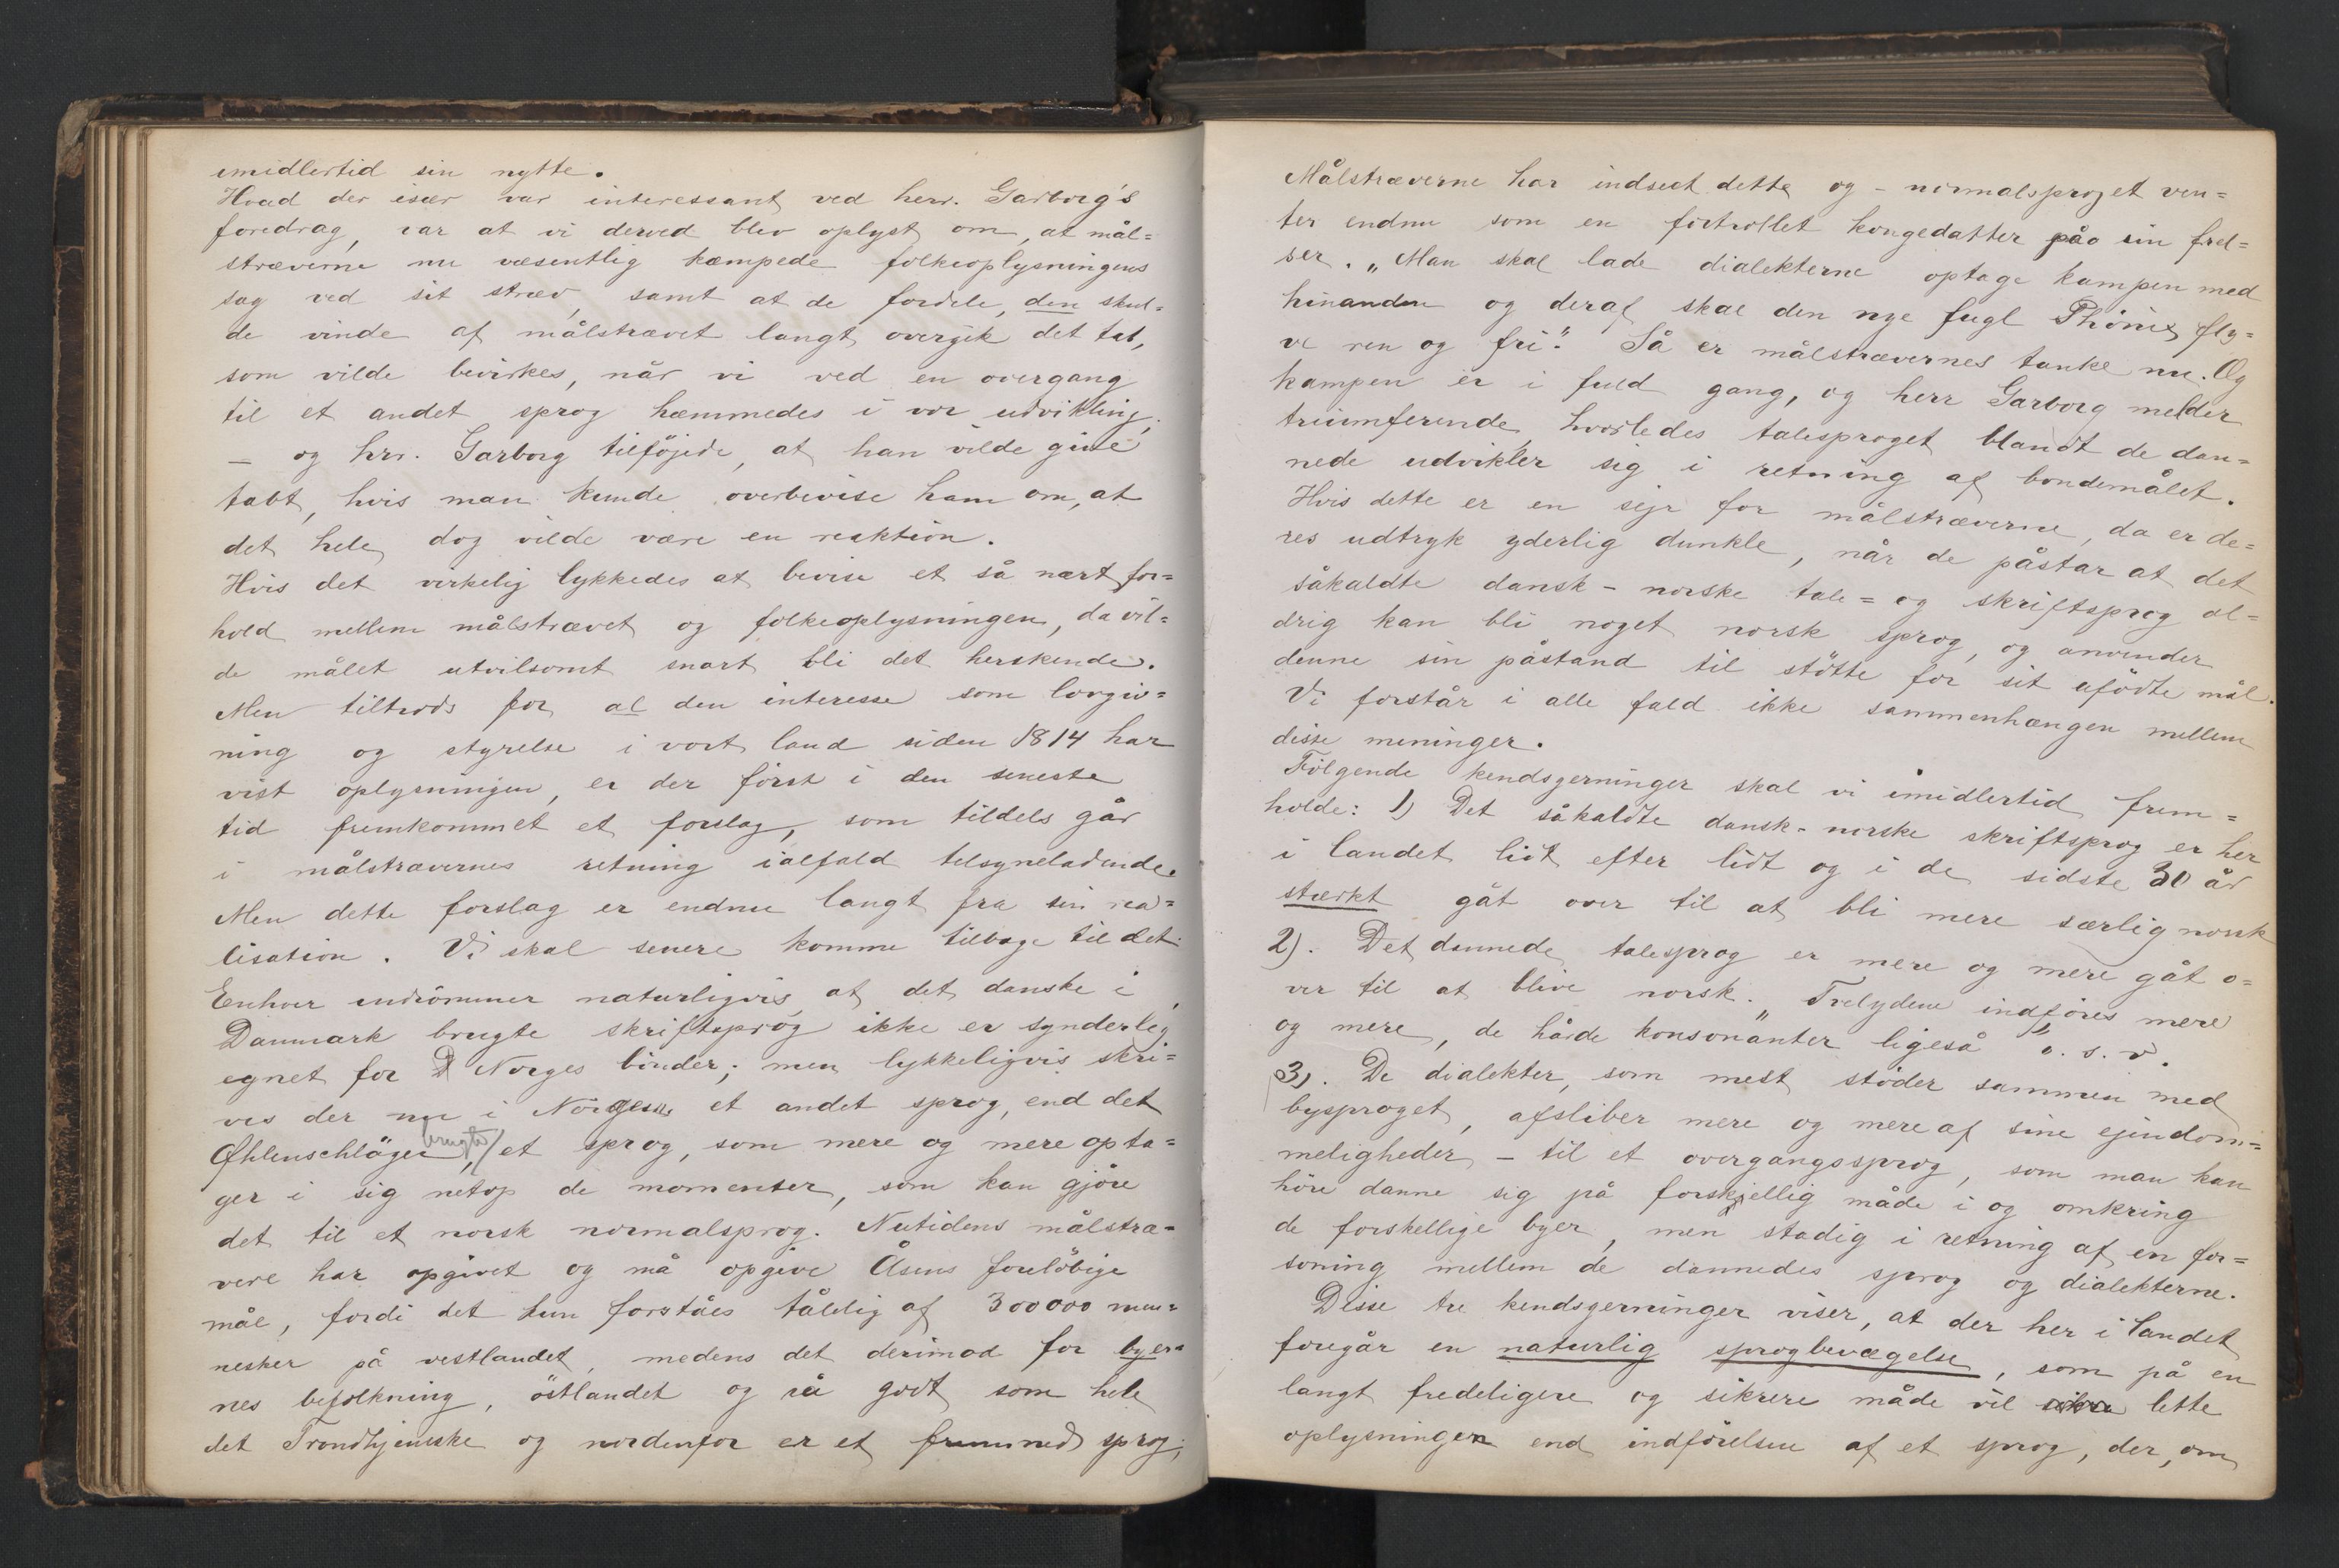 imidlertid sin nytte.
Hvad der især var interessant ved herr. Garborg's
foredrag, var at vi derved blev oplyst om, at mål=
stræverne nu væsentlig kæmpede folkeoplysningens
sag ved sit stræv, samt at de fordele, den skul=
de vinde af målstrævet langt overgik det tab,
som vilde bevirkes, når vi ved en overgang
til et andet sprog hæmmedes i vor udvikling;
– og hrr. Garborg tilföjede, at han vilde give
tabt, hvis man kunde overbevise ham om, at
det hele dog vilde være en reaktion.
Hvis det virkelig lykkedes at bevise et så nært for=
hold mellem målstrævet og folkeoplysningen, da vil=
de målet utvilsomt snart bli det herskende.
Men tiltrods for al den interesse som lovgiv=
ning og styrelse i vort land siden 1814 har
vist oplysningen, er der först i den seneste
tid fremkommet et forslag, som tildels går
i målstrævernes retning ialfald tilsyneladende.
Men dette forslag er endnu langt fra sin rea=
lisation. Vi skal senere komme tilbage til det.
Enhver indrömmer naturligvis, at det danske i
Danmark brugte skriftsprog ikke er synderlig
egnet for D Norges bönder; men lykkeligvis skri=
ves der nu i Norge et andet sprog, end det
Øhlenschläger brugte, et sprog, som mere og mere opta=
ger i sig netop de momenter, som kan gjöre
det til et norsk normalsprog. Nutidens målstræ=
vere har opgivet og må opgive Åsens forelöbige
mål, fordi det kun forståes tålelig af 300000 men=
nesker på vestlandet, medens det derimod for byer=
nes befolkning, östlandet og så godt som hele
det Trondhjemske og nordenfor er et fremmed sprog;
Målstræverne har indseet dette og – normalsproget ven=
ter endnu som en fortrollet kongedatter på sin frel=
ser. „Man skal lade dialekterne optage kampen med
hinanden og deraf skal den nye fugl Phönix fly=
ve ren og fri." Så er målstrævernes tanke nu. Og
kampen er i fuld gang, og herr Garborg melder
triumferende, hvorledes talesproget blandt de dan=
nede udvikler sig i retning af bondemålet.
Hvis dette er en sejr for målstræverne, da er de=
res udtryk yderlig dunkle, når de påstar at det
såkaldte dansk-norske tale= og skriftsprog al=
drig kan bli noget norsk sprog, og anvender
denne sin påstand til stötte for sit ufödte mål.
Vi forstår i alle fald ikke sammenhængen mellem
disse meninger.
Fölgende kendsgerninger skal vi imidlertid frem=
holde: 1) Det såkaldte dansk-norske skriftsprog er her
i landet lidt efter lidt og i de sidste 30 år
stærkt gåt over til at bli mere særlig norsk
2). Det dannede talesprog er mere og mere gåt o=
ver til at blive norsk. „Tvelydene indföres mere
og mere, de hårde konsonanter ligeså" o. s. v.
3). De dialekter, som mest stöder sammen med
bysproget, afsliber mere og mere af sine ejendom=
meligheder – til et overgangssprog, som man kan
höre danne sig på forskjellig måde i og omkring
de forskellige byer, men stadig i retning af en for=
soning mellem de dannedes sprog og dialekterne.
Disse tre kendsgerninger viser, at der her i landet
foregår en naturlig sprogbevægelse, som på en
langt fredeligere og sikrere måde vil lette
oplysningen end indförelsen af et sprog, der, om